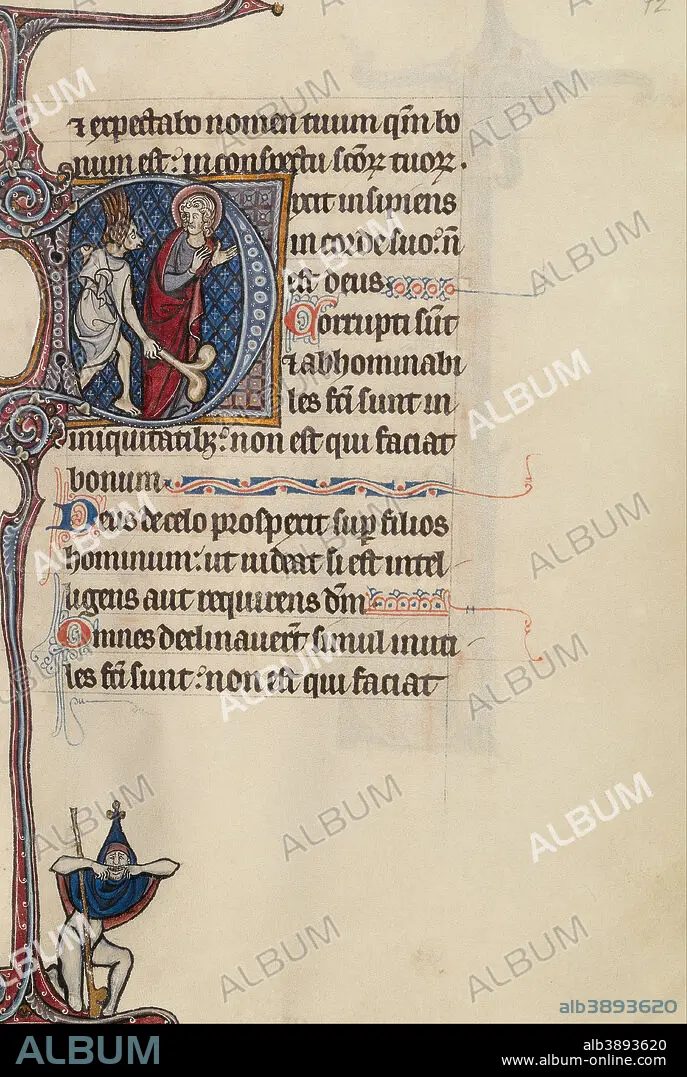 72
⁊ expectabo nomen tuum qm̄ bo
num est: in conspectu sc̄oꝝ tuoꝝ.
Dixit insipiens
in corde suo: n̄
est deus
Corrupti sūt
⁊ abhominabi
les fc̄i sunt in
iniquitatibꝫ: non est qui faciat
bonum
Deus de celo prosperit sup̄ filios
hominum: ut uideat si est intel
ligens aut requirens dm̄
Omnes declinauer̄t simul inuti
les fc̄i sunt: non est qui faciat
ALBUM
alb3893620
ALBUM
alb3893620
www.album-online.com